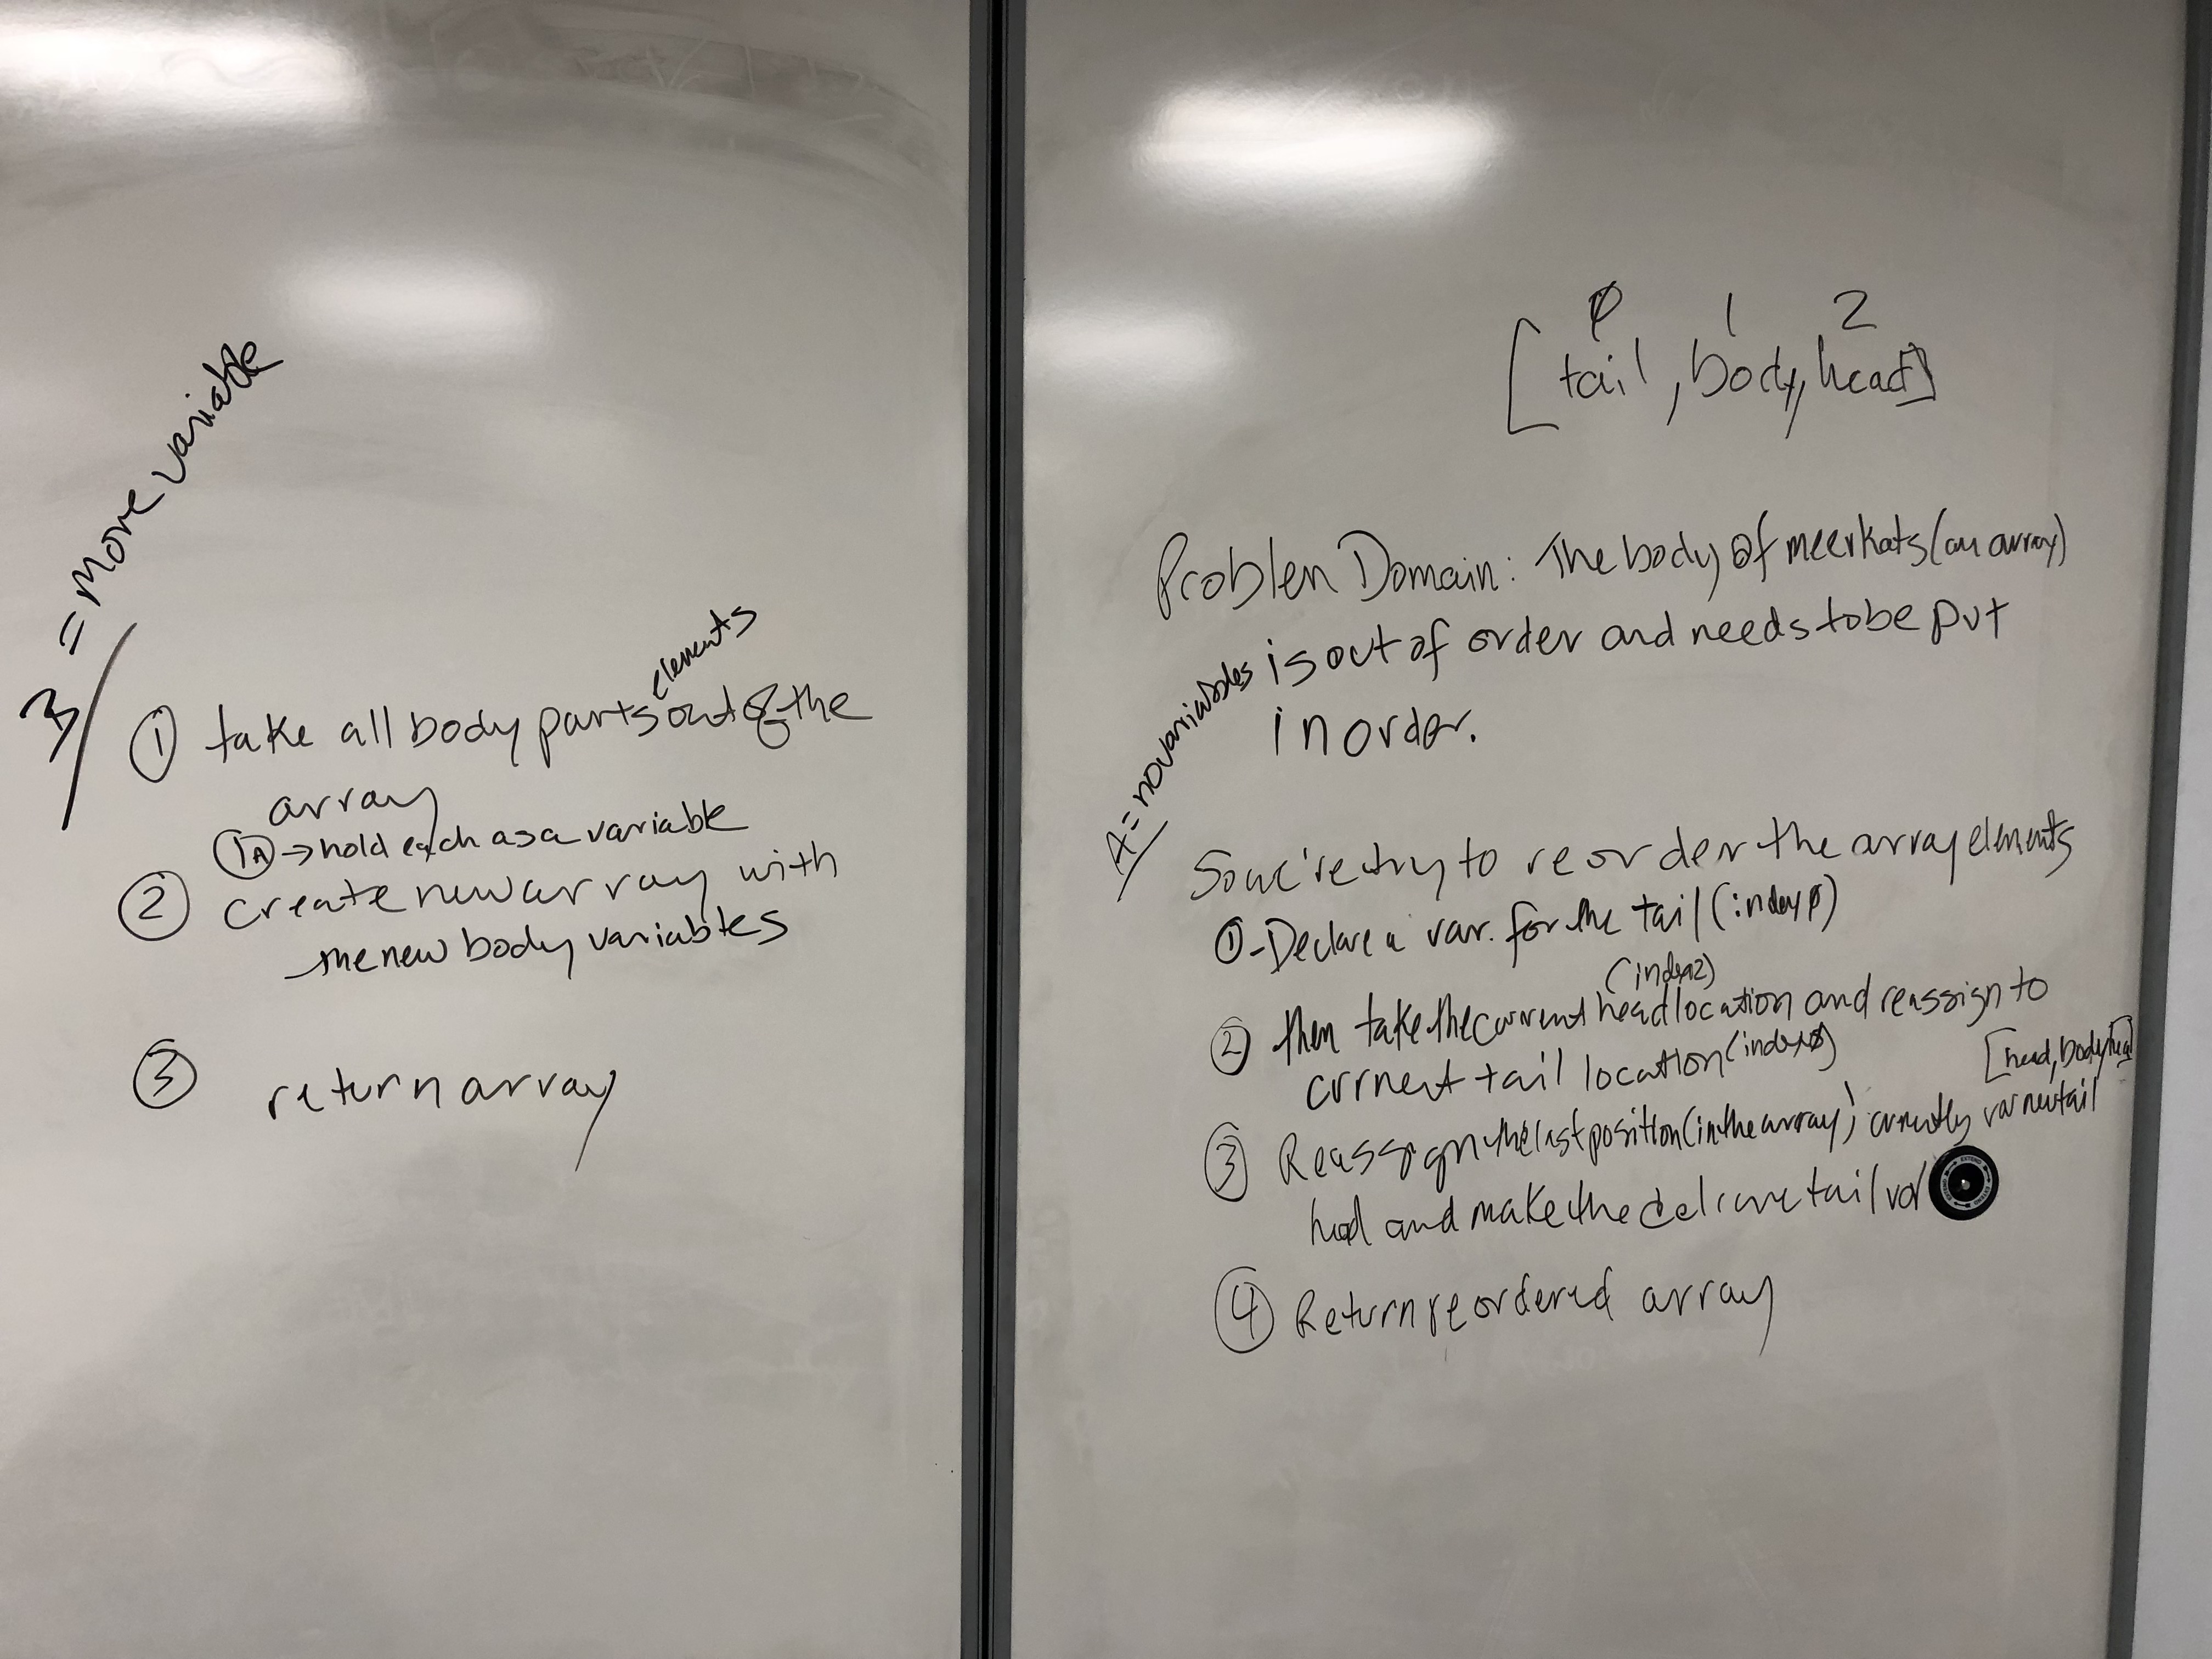 B/ = more variable
① take all body parts elements out of the
array
1A → hold each as a variable
② create new array with
the new body variables
③ return array
0 1 2
[tail, body, head]
Problem Domain: The body of meerkats (an array)
is out of order and needs to be put
in order.
A/ = no variables
So we're try to reorder the array elements
① - Declare a var. for the tail (index 0)
(index 2)
② then take the current head location and reassign to
currnent tail location (index 0)
[head, body, head]
③ Reassign the last position (in the array) currently var new tail
head and make the tail var
④ Return reordered array
EXTEND